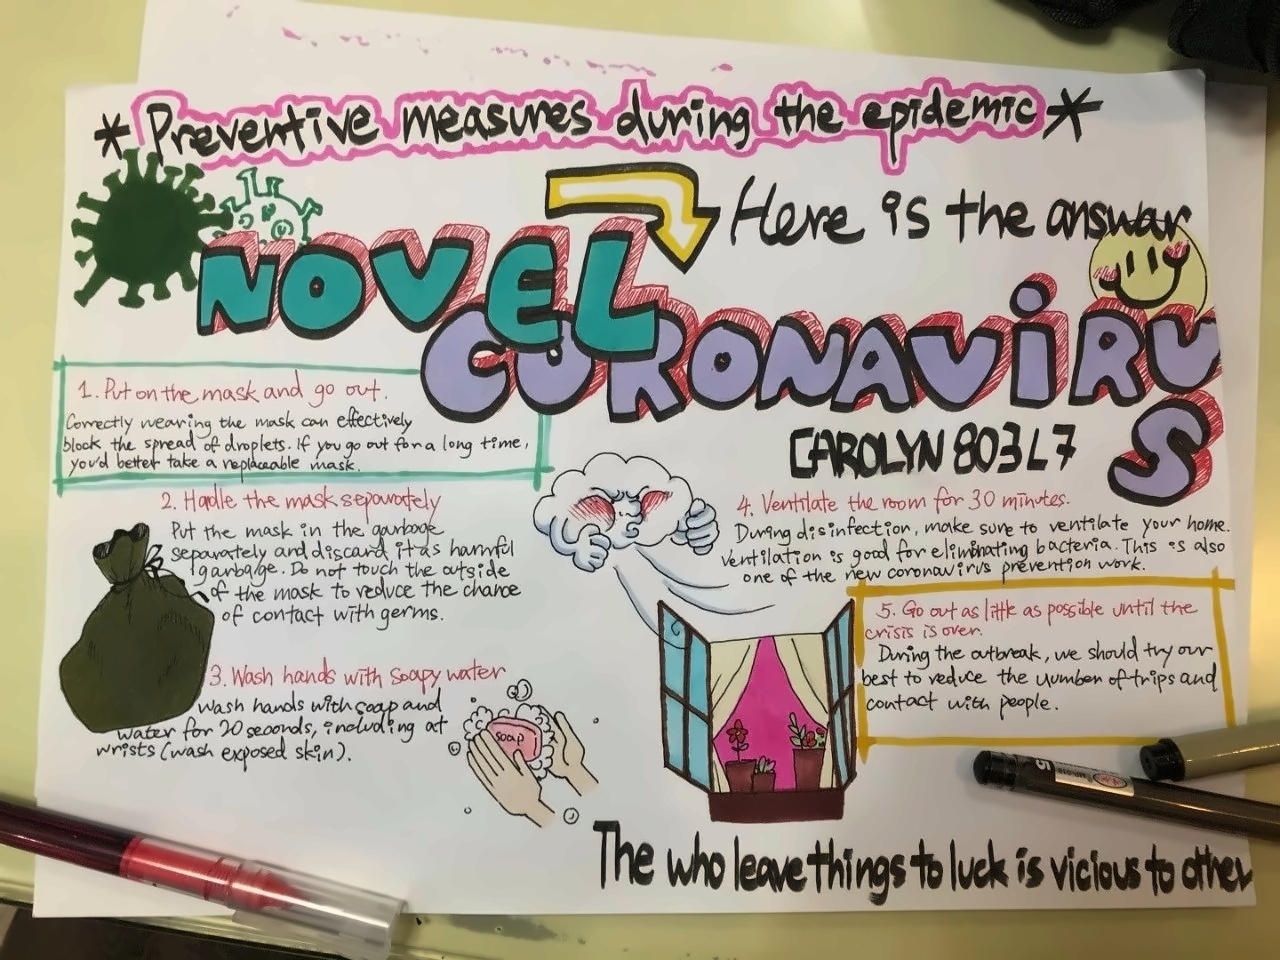 *Preventive measures during the epidemic*
Here is the answar
NOVEL
CORONAVIRUS
CAROLYN 803 L7
1. Put on the mask and go out.
Correctly wearing the mask can effectively
block the spread of droplets. If you go out for a long time,
you'd better take a replaceable mask.
2. Hadle the mask separately
Put the mask in the garbage
separately and discard it as harmful
garbage. Do not touch the outside
of the mask to reduce the chance
of contact with germs.
3. Wash hands with soapy water
Wash hands with soap and
water for 20 seconds, including at
wrists (wash exposed skin).
soap
4. Ventilate the room for 30 minutes.
During disinfection, make sure to ventilate your home.
Ventilation is good for eliminating bacteria. This is also
one of the new coronavirus prevention work.
5. Go out as little as possible until the
crisis is over.
During the outbreak, we should try our
best to reduce the number of trips and
contact with people.
The who leave things to luck is vicious to other